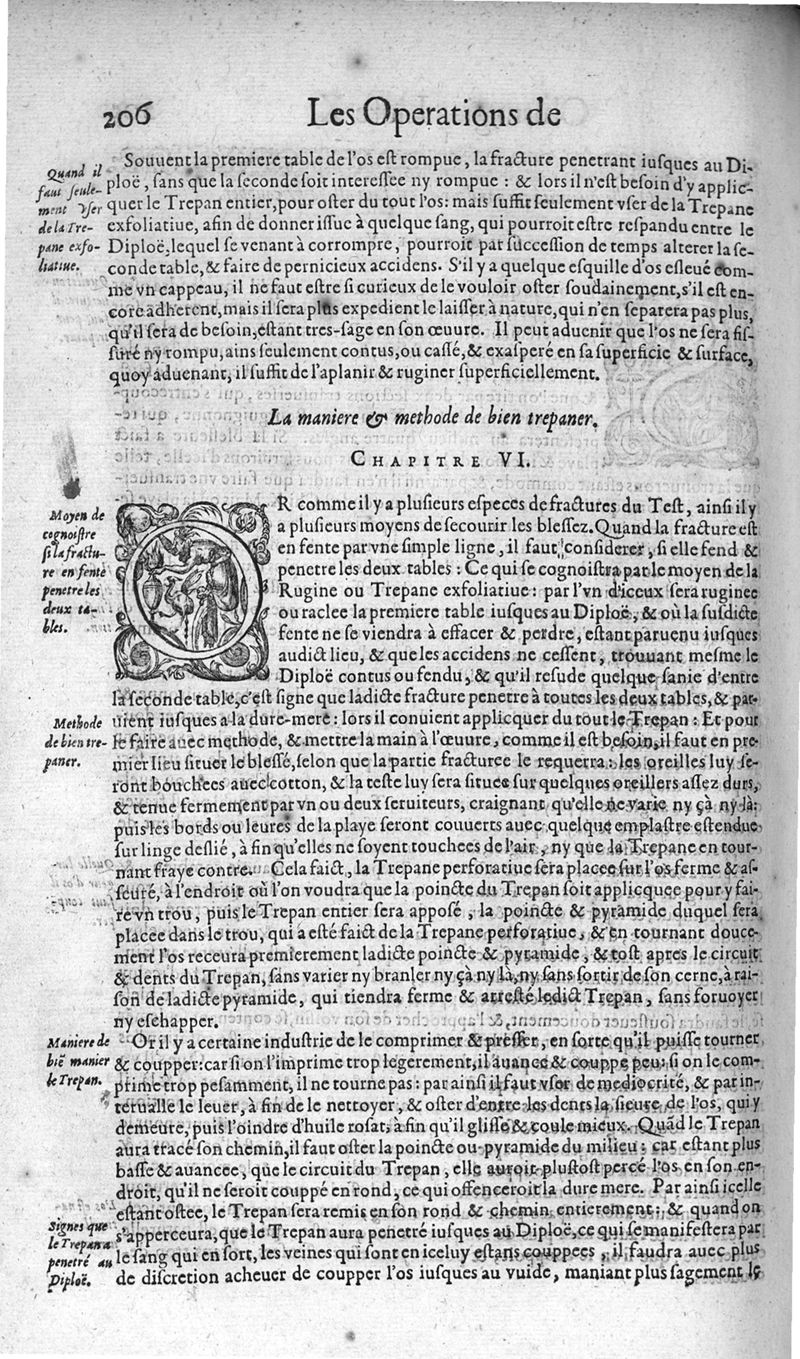 206
Les Operations de
Souuent la premiere table de l'os est rompue, la fracture penetrant iusques au Di-
ploë, sans que la seconde soit interessee ny rompue : & lors il n'est besoin d'y applic-
quer le Trepan entier, pour oster du tout l'os: mais suffit seulement vser de la Trepane
exfoliatiue, afin de donner issue à quelque sang, qui pourroit estre respandu entre le
Diploë, lequel se venant à corrompre, pourroit par succession de temps alterer la se-
conde table, & faire de pernicieux accidens. S'il y a quelque esquille d'os esleué com-
me vn cappeau, il ne faut estre si curieux de le vouloir oster soudainement, s'il est en-
core adherent, mais il sera plus expedient le laisser à nature, qui n'en separera pas plus,
qu'il sera de besoin, estant tres-sage en son œuure. Il peut aduenir que l'os ne sera fis-
suré ny rompu, ains seulement contus, ou cassé, & exasperé en sa superficie & surface,
quoy aduenant, il suffit de l'aplanir & ruginer superficiellement.
Quand il
faut seule-
ment vser
de la Tre-
pane exfo-
liatiue.
La maniere & methode de bien trepaner.
CHAPITRE VI.
OR comme il y a plusieurs especes de fractures du Test, ainsi il y
a plusieurs moyens de secourir les blessez. Quand la fracture est
en fente par vne simple ligne, il faut considerer, si elle fend &
penetre les deux tables : Ce qui se cognoistra par le moyen de la
Rugine ou Trepane exfoliatiue: par l'vn d'iceux sera ruginee
ou raclee la premiere table iusques au Diploë, & où la susdicte
fente ne se viendra à effacer & perdre, estant paruenu iusques
audict lieu, & que les accidens ne cessent, trouuant mesme le
Diploë contus ou fendu, & qu'il resude quelque sanie d'entre
la seconde table, c'est signe que ladicte fracture penetre à toutes les deux tables, & par-
uient iusques a la dure-mere: lors il conuient applicquer du tout le Trepan : Et pour
le faire auec methode, & mettre la main à l'œuure, comme il est besoin, il faut en pre-
mier lieu situer le blessé, selon que la partie fracturee le requerra: les oreilles luy se-
ront bouchees auec cotton, & la teste luy sera situee sur quelques oreillers assez durs,
& tenue fermement par vn ou deux seruiteurs, craignant qu'elle ne varie ny çà ny là:
puis les bords ou leures de la playe seront couuerts auec quelque emplastre estendue
sur linge deslié, à fin qu'elles ne soyent touchees de l'air, ny que la Trepane en tour-
nant fraye contre. Cela faict, la Trepane perforatiue sera placee sur l'os ferme & as-
seuré, à l'endroit où l'on voudra que la poincte du Trepan soit applicquee pour y fai-
re vn trou, puis le Trepan entier sera apposé, la poincte & pyramide duquel sera
placee dans le trou, qui a esté faict de la Trepane perforatiue, & en tournant douce-
ment l'os receura premierement ladicte poincte & pyramide, & tost apres le circuit
& dents du Trepan, sans varier ny branler ny çà ny là, ny sans sortir de son cerne, à rai-
son de ladicte pyramide, qui tiendra ferme & arresté ledict Trepan, sans foruoyer
ny eschapper.
Moyen de
cognoistre
si la fractu-
re en fente
penetre les
deux ta-
bles.
Methode
de bien tre-
paner.
Or il y a certaine industrie de le comprimer & presser, en sorte qu'il puisse tourner
& coupper: car si on l'imprime trop legerement, il auance & couppe peu: si on le com-
prime trop pesamment, il ne tourne pas: par ainsi il faut vser de mediocrité, & par in-
terualle le leuer, à fin de le nettoyer, & oster d'entre les dents la sieure de l'os, qui y
demeure, puis l'oindre d'huile rosat, à fin qu'il glisse & coule mieux. Quād le Trepan
aura tracé son chemin, il faut oster la poincte ou pyramide du milieu: car estant plus
basse & auancee, que le circuit du Trepan, elle auroit plustost percé l'os en son en-
droit, qu'il ne seroit couppé en rond, ce qui offenceroit la dure mere. Par ainsi icelle
estant ostee, le Trepan sera remis en son rond & chemin entierement: & quand on
s'apperceura, que le Trepan aura penetré iusques au Diploë, ce qui se manifestera par
le sang qui en sort, les veines qui sont en iceluy estans couppees, il faudra auec plus
de discretion acheuer de coupper l'os iusques au vuide, maniant plus sagement le
Maniere de
biē manier
le Trepan.
Signes que
le Trepan a
penetré au
Diploë.